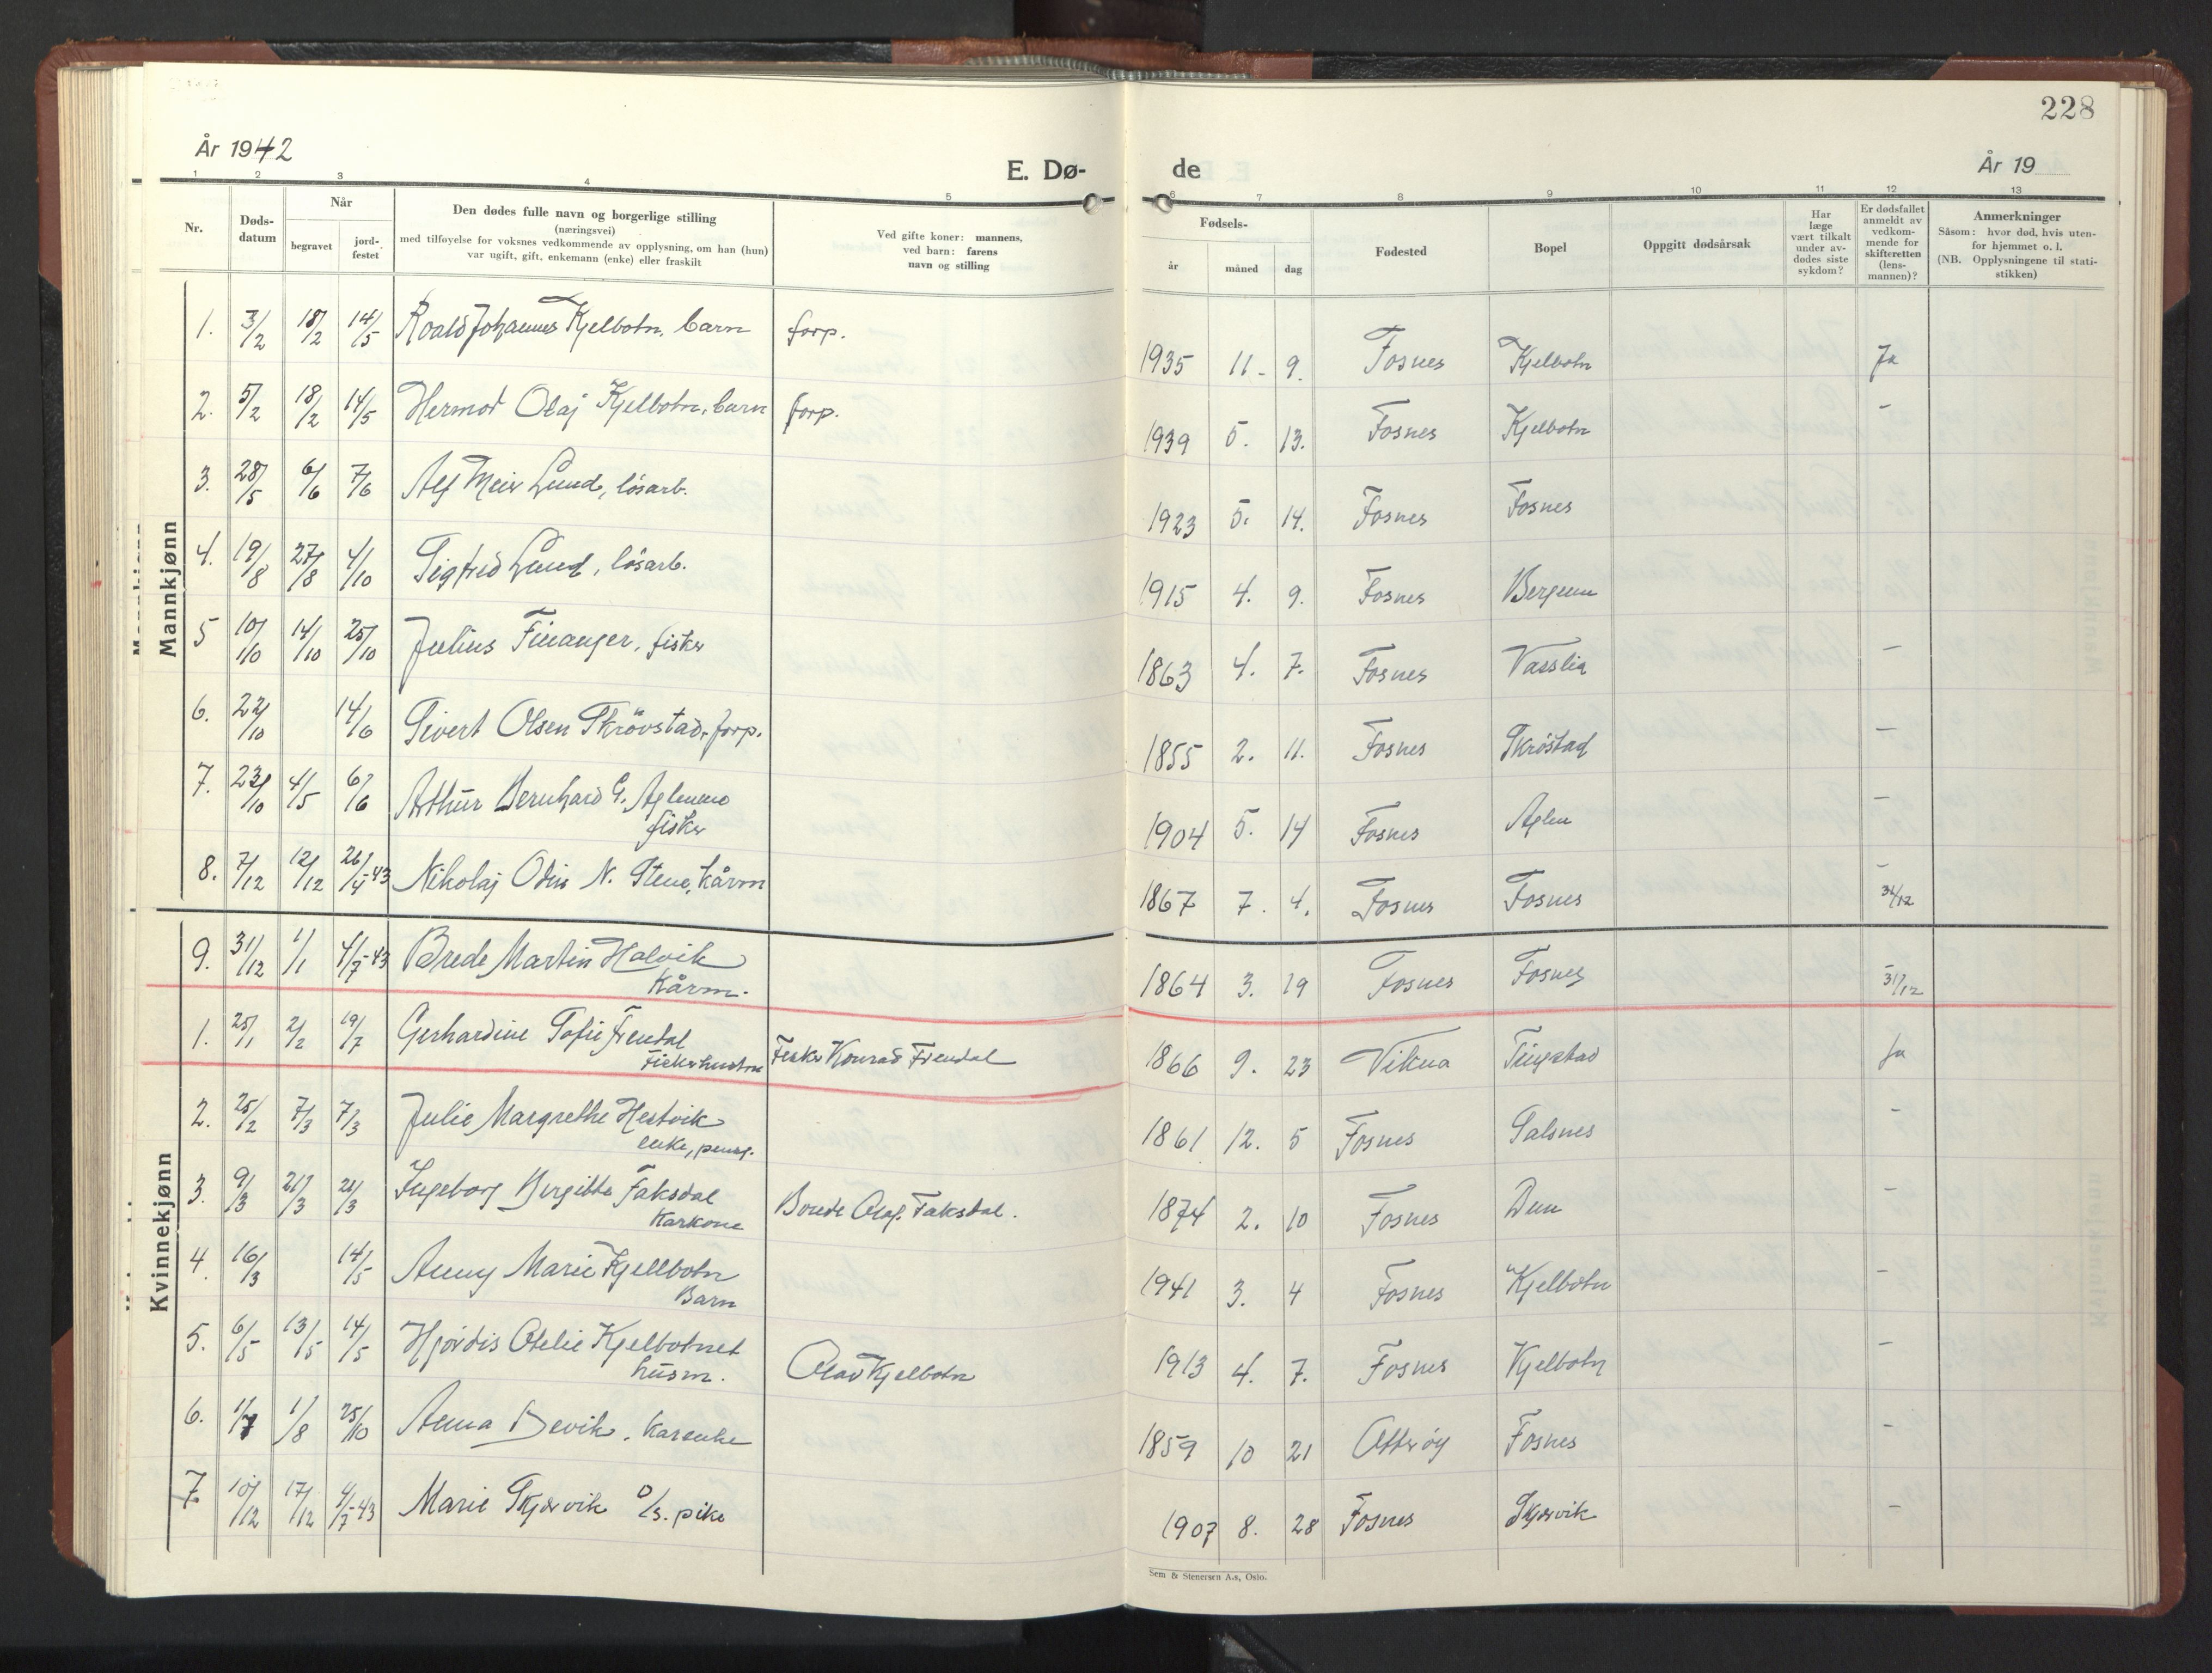 228
År 1942
E. Dø-
de
År 19
1 2 3 4 5 6 7 8 9 10 11 12 13
Nr.
Døds-
datum
Når
begravet
jord-
festet
Den dødes fulle navn og borgerlige stilling
(næringsvei)
med tilføyelse for voksnes vedkommende av opplysning, om han (hun)
var ugift, gift, enkemann (enke) eller fraskilt
Ved gifte koner: mannens,
ved barn: farens
navn og stilling
Fødsels-
år måned dag
Fødested
Bopel
Oppgitt dødsårsak
Har
læge
vært tilkalt
under av-
dødes siste
sykdom?
Er dødsfallet
anmeldt av
vedkom-
mende for
skifteretten
(lens-
mannen)?
Anmerkninger
Såsom: hvor død, hvis uten-
for hjemmet o. l.
(NB. Opplysningene til stati-
stikken)
Mannkjønn
1. 3/2 18/2 14/5 Roald Johannes Kjelbotn, barn forp. 1935 11. 9. Fosnes Kjelbotn Ja
2. 5/2 18/2 14/5 Hermod Olaf Kjelbotn, barn forp. 1939 5. 13. Fosnes Kjelbotn -
3. 28/5 6/6 7/6 Alf Meir Lund, lösarb. 1923 5. 14. Fosnes Fosnes
4. 19/8 27/8 4/10 Sigfred Lund, lösarb. 1915 4. 9. Fosnes
5 10/10 14/10 25/10 Julius Finanger, fisker 1863 4. 7. Fosnes Vasslia -
6. 22/10 14/6 Sivert Olsen Skrövstad, forp. 1855 2. 11. Fosnes Skröstad -
7. 23/10 4/5 6/6 Arthur Bernhard G. Aglenmo
fisker 1904 5. 14 Fosnes Aglen -
8. 7/12 12/12 26/4-43 Nikolaj Odin N. Stene, kårm 1867 7. 4. Fosnes Fosnes - 31/12
9. 31/12 1/1 4/7-43 Brede Martin Halvik
Kårm. 1864 3. 19 Fosnes Fosnes - 31/12
Kvinnekjønn
1. 25/1 2/2 19/7 Gerhardine Sofie Frendal
Fiskerhustru Fisker Konrad Frendal 1866 9. 23 Vikna Tingstad Ja
2. 25/2 7/3 7/3 Julie Margrethe Hestvik
enke, pensj. 1861 12. 5 Fosnes Salsnes -
3. 9/3 21/3 21/3 Ingeborg Bergitte Faksdal
Karkone Bonde Olaf Faksdal. 1874 2. 10 Fosnes Dun -
4. 16/3 14/5 Anny Marie Kjellbotn
Barn 1941 3. 4 Fosnes Kjelbotn -
5. 6/5 13/5 14/5 Hjördis Otelie Kjelbotnet
husm. Olav Kjelbotn 1913 4. 7. Fosnes Kjelbotn -
6. 1/7 1/8 25/10 Anna Devik, Karenke 1859 10 21 Otterøy Fosnes -
7 10/12 17/12 4/7-43 Marie Skjærvik D/s. pike 1907 8. 28 Fosnes Skjærvik -
Sem & Stenersen A.s, Oslo.